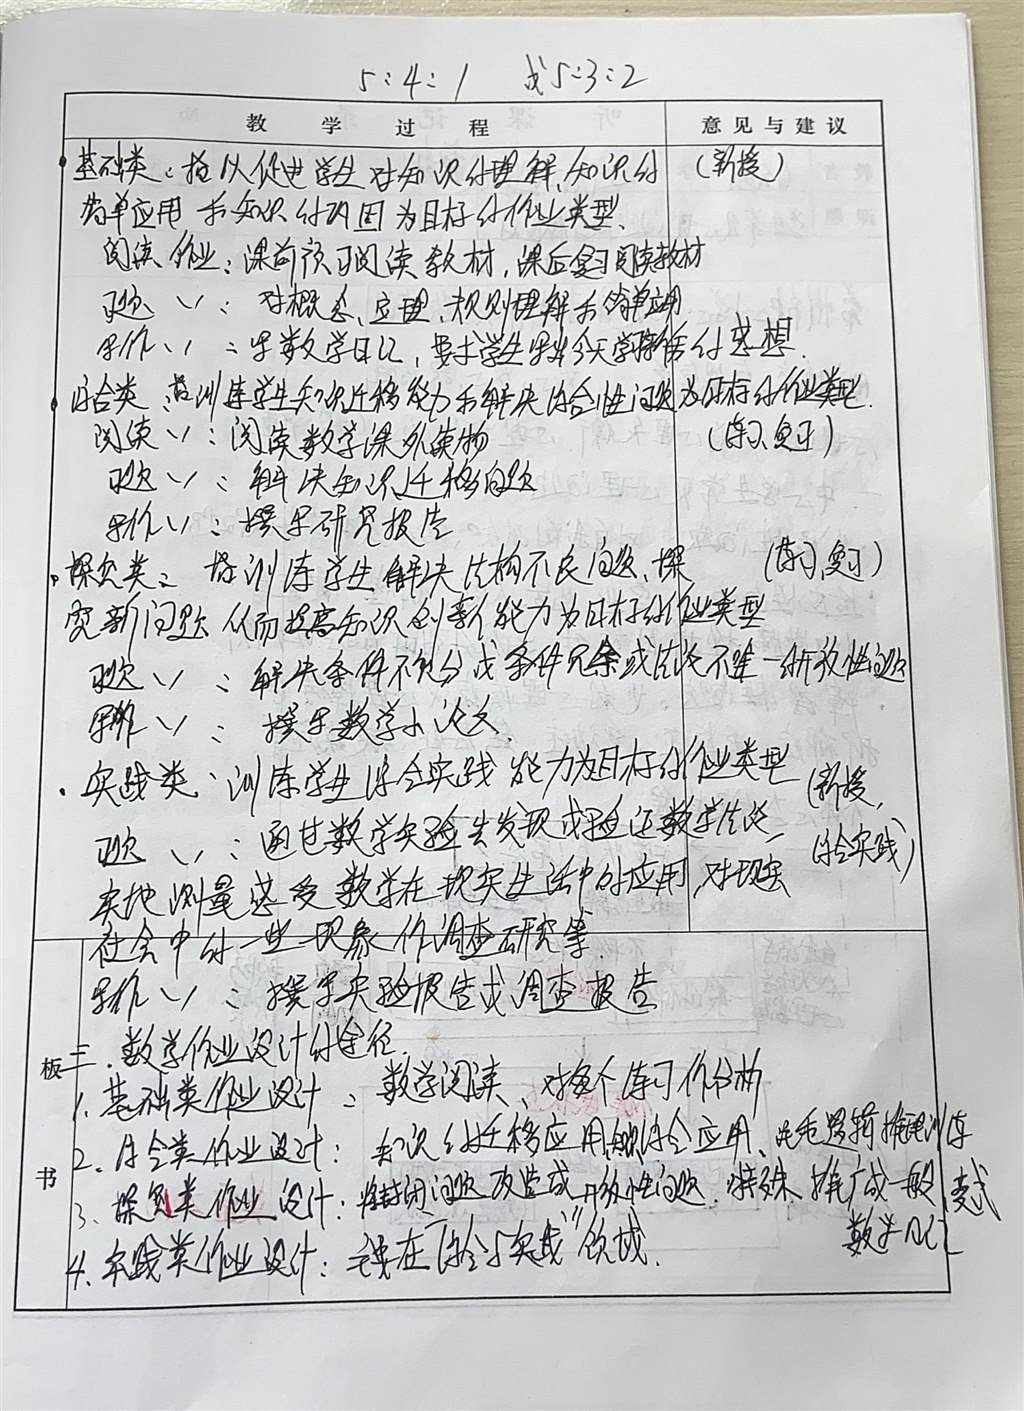 5:4:1 或5:3:2
教 学 过 程 意见与建议
基础类:指以促进学生对知识的理解、知识的 (新授)
简单应用和知识的巩固为目标的作业类型.
阅读作业:课前预习阅读教材,课后复习阅读教材
习题〃:对概念、定理、规则理解和简单应用
写作〃:写数学日记,要求学生写出今天学习的感想.
综合类:指训练学生知识迁移能力和解决综合性问题为目标的作业类型.
阅读〃:阅读数学课外读物 (练习、复习)
习题〃:解决知识迁移问题
写作〃:撰写研究报告
探究类:指训练学生解决结构不良问题、探 (练习、复习)
究新问题从而提高知识创新能力为目标的作业类型
习题〃:解决条件不充分或条件冗余或结论不唯一开放性问题
写作〃:撰写数学小论文.
实践类:训练学生综合实践能力为目标的作业类型 (新授,
习题〃:通过数学实验去发现或验证数学结论, 综合实践)
实地测量感受数学在现实生活中的应用,对现实
社会中的一些现象作调查研究等.
写作〃:撰写实验报告或调查报告
板 三.数学作业设计的途径.
1.基础类作业设计:数学阅读、对每个练习作分析
书 2.综合类作业设计:知识的迁移应用,综合应用、逻辑推理训练
3.探究类作业设计:将封闭问题改造成开放性问题.特殊推广成一般 变式
数学日记
4.实践类作业设计:主要在"综合与实践"领域.